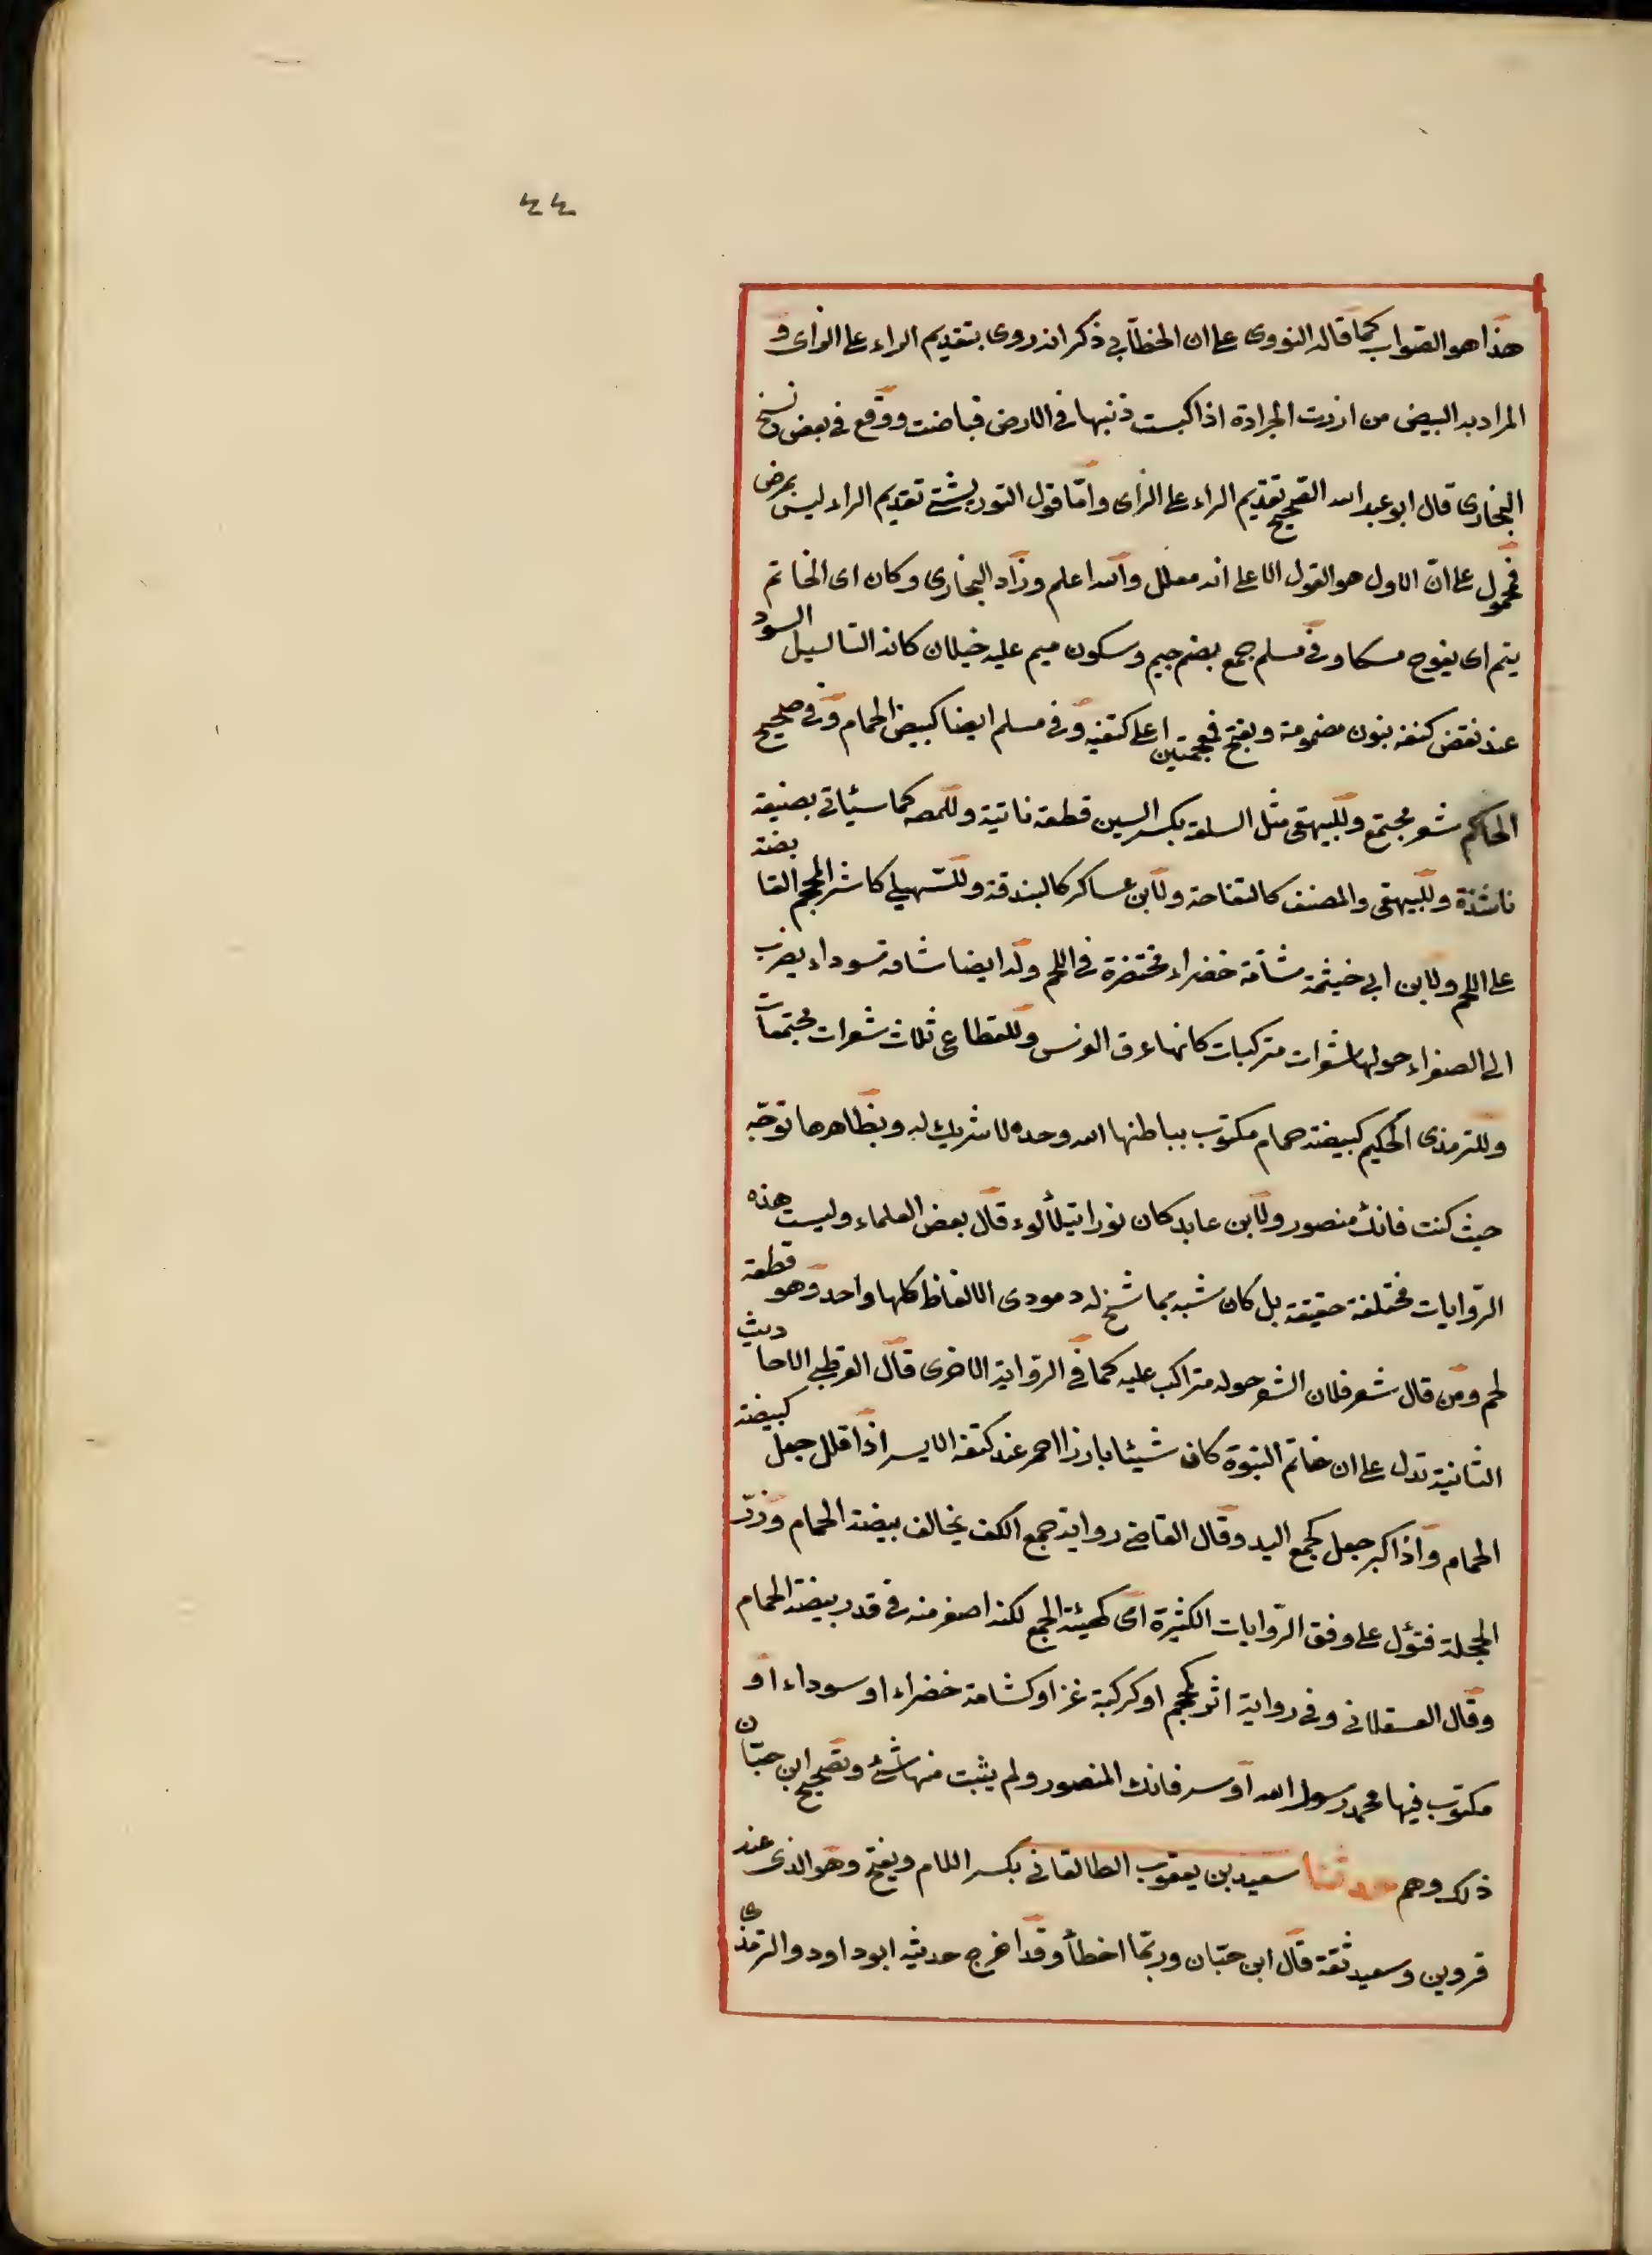 ٤٤
هذا هو الصواب كما قاله النووى على ان الخطابى ذكر انه روى بتقديم الراء على الزاى و
المراد به البيض من ارزت الجرادة اذا كبست ذنبها فى الارض فباضت ووقع فى بعض نسخ
البخارى قال ابو عبد الله الصحيح تقديم الراء على الزاى واما قول التوربشتى تقديم الراء ليس بمرض
فمحمول على ان الاول هو القول الا على انه معلل والله اعلم وزاد البخارى وكان اى الخاتم
ينم اى يفوح مسكا وفى مسلم جمع بضم جيم وسكون ميم عليه خيلان كانه الثاليل السود
عند نغض كتفه بنون مضمومة وبفتح فمعجمتين اعلى كتفيه وفى مسلم ايضا كبيض الحمام وفى صحيح
الحاكم شعر مجتمع وللبيهقى مثل السلعة بكسر السين قطعة ناتية وللمصه كما سيئاتى بضيعة
ناشذة وللبيهقى والمصنف كالتفاحة ولابن عساكر كالبندقة وللسهيلى كاثر المحجم القابضة
على اللحم ولابن ابى خيثمة شأمة خضراء محتفرة فى اللحم وله ايضا شامة سوداء يضرب
الى الصفراء حولها شعرات متركبات كانها عرف الفرس وللقطاعى ثلاث شعرات مجتمعات
وللترمذى الحكيم كبيضة حمام مكتوب بباطنها الله وحده لا شريك له وبظاهرها توجه
حيث كنت فانك منصور ولابن عابد كان نورا يتلألوء قال بعض العلماء وليست هذه
الروايات مختلفة حقيقة بل كان شبه بما شخ له ومودى الالفاظ كلها واحد وهو قطعة
لحم ومن قال شعر فلان الشعر حوله متراكب عليه كما فى الرواية الاخرى قال القرطبى الاحاديث
الثانية تدل على ان خاتم النبوة كان شيئا بارزا احمر عند كتفه الايسر اذا قلل جعل كبيضة
الحمام واذا كبر جعل كجمع اليد وقال القاضى رواية جمع الكف يخالف بيضة الحمام وزر
الحجلة فتؤل على وفق الروايات الكثيرة اى كهيئة الجمع لكنه اصغر منه فى قدر بيضة الحمام
وقال العسقلانى وفى رواية اثر كمحجم او كركبة غز او كشامة خضراء او سوداء او
مكتوب فيها محمد رسول الله او سر فانك المنصور ولم يثبت منها شئ وتصحيح ابن حبان
ذلك وهم حدثنا سعيد بن يعقوب الطالقانى بكسر اللام ويفتح وهو الذى عند
قزوين وسعيد ثقة قال ابن حبان وربما اخطأ وقد اخرج حديثه ابو داود والترمذى